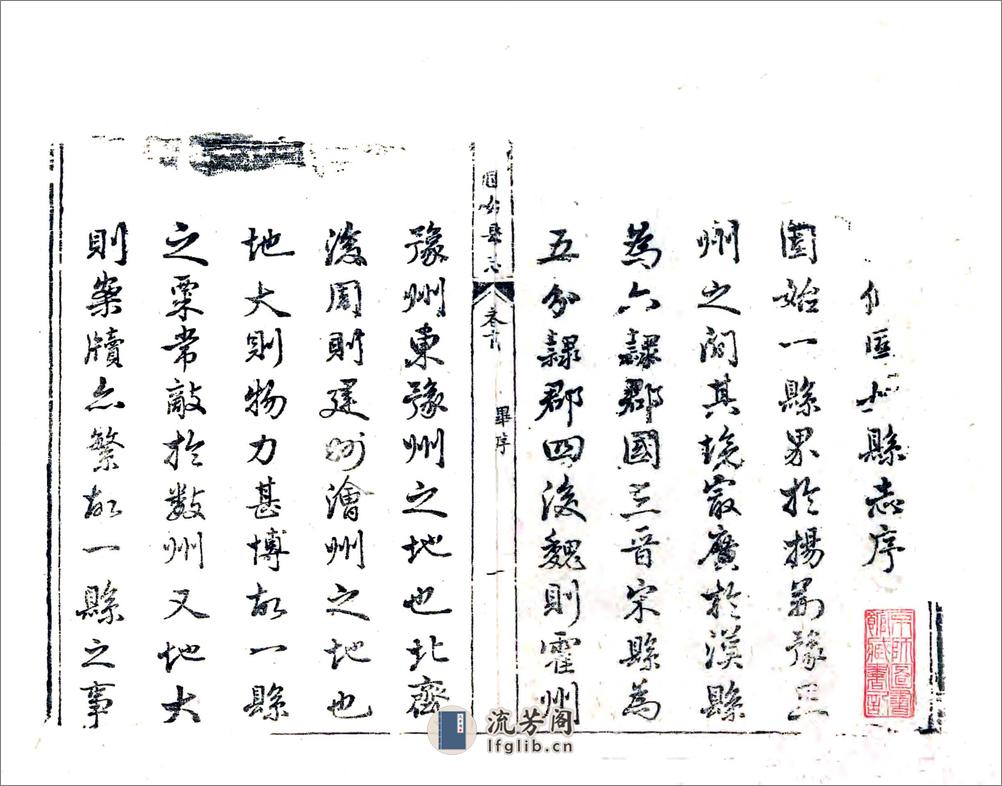 縣志序
固始一縣界於揚荊豫三
州之間其境最廣於漢縣
為六隸郡國三晉宋縣為
五分隸郡四後魏則霍州
固始縣志
卷首
畢序
一
豫州東豫州之地也北齊
後周則建州澮州之地也
地大則物力甚博故一縣
之粟常敵於數州又地大
則案牘亦繁故一縣之事
京師圖書
館藏書記
流芳阁
lfglib.cn